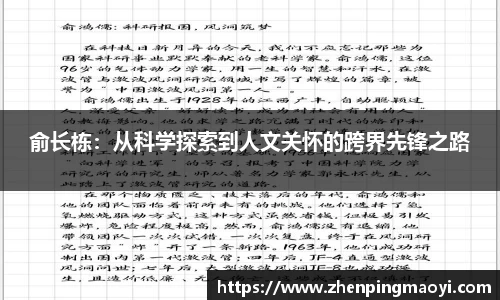 俞鸿儒:科研报国,风洞筑梦
在科技日新月异的今天,我们不应忘记那些为
国家科研事业默默奉献的老科学家。俞鸿儒,这位
96岁的气体动力学家,用一生的智慧和汗水,在激
波管与激波风洞研究领域书写了辉煌的篇章,被
誉为“中国激波风洞第一人”。
俞鸿儒出生于1928年的江西广丰,自幼聪颖过
俞长栋:从科学探索到人文关怀的跨界先锋之路
的科学进军”的号召,报考了中国科学院力学
研究所的研究生,师从著名力学家郭永怀先生,从此
踏上了激波管研究的道路。
在那个物质匮乏、技术落后的年代,俞鸿儒和
他的团队面临着前所未有的挑战。他们选择了氢
氧燃烧驱动方式,这种方式虽然省钱,但极易引燃
爆炸,危险程度极高。然而,俞鸿儒没有退缩,他
带领团队一次次试错、一次次复盘,终于在风洞研
究方面“炸”开了一条新路。1963年,他们成功研
制出国内第一代激波管;四年后,JF-4直通型激波
风洞问世;七年后,大型激波风洞JF-8也成功诞
生,且造价低廉
https://www.zhenpingmaoyi.com